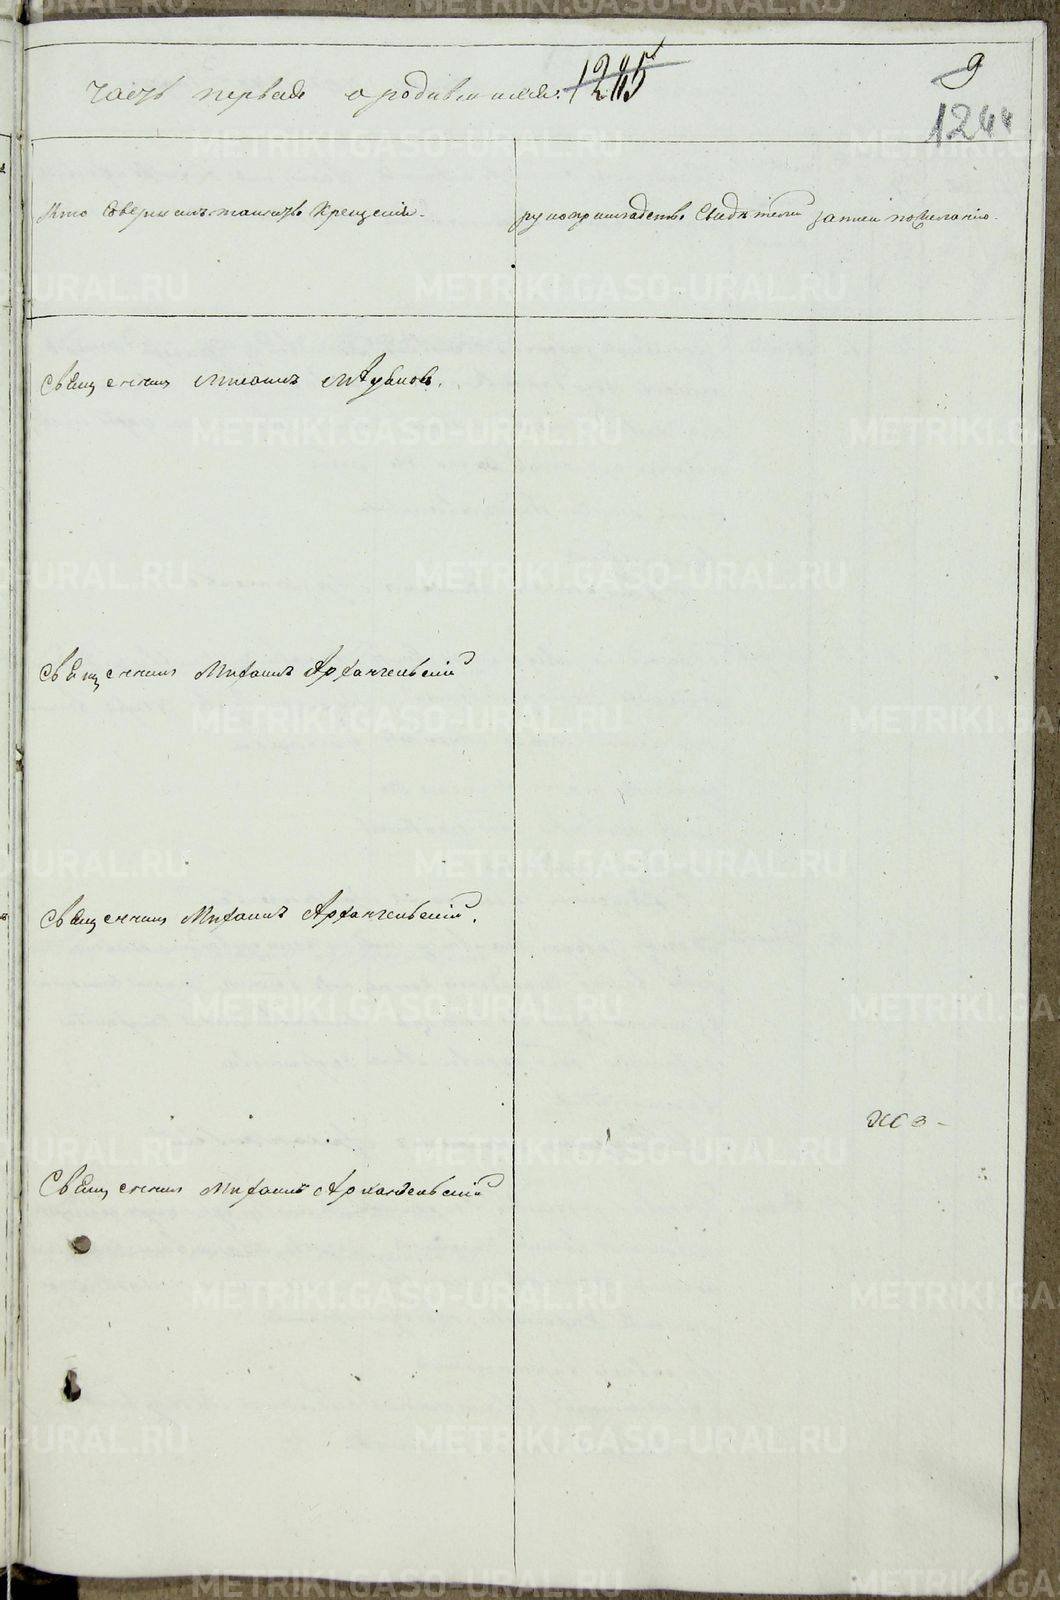 часть первая о родившихся. 1245
9
1244
Кто совершалъ таинство Крещенія.
рукоприкладство свидѣтелей записи по желанію.
Священникъ Михаилъ
Священникъ Михаилъ Архангельскій
Священникъ Михаилъ Архангельскій.
Священникъ Михаилъ Архангельскій
METRIKI.GASO-URAL.RU